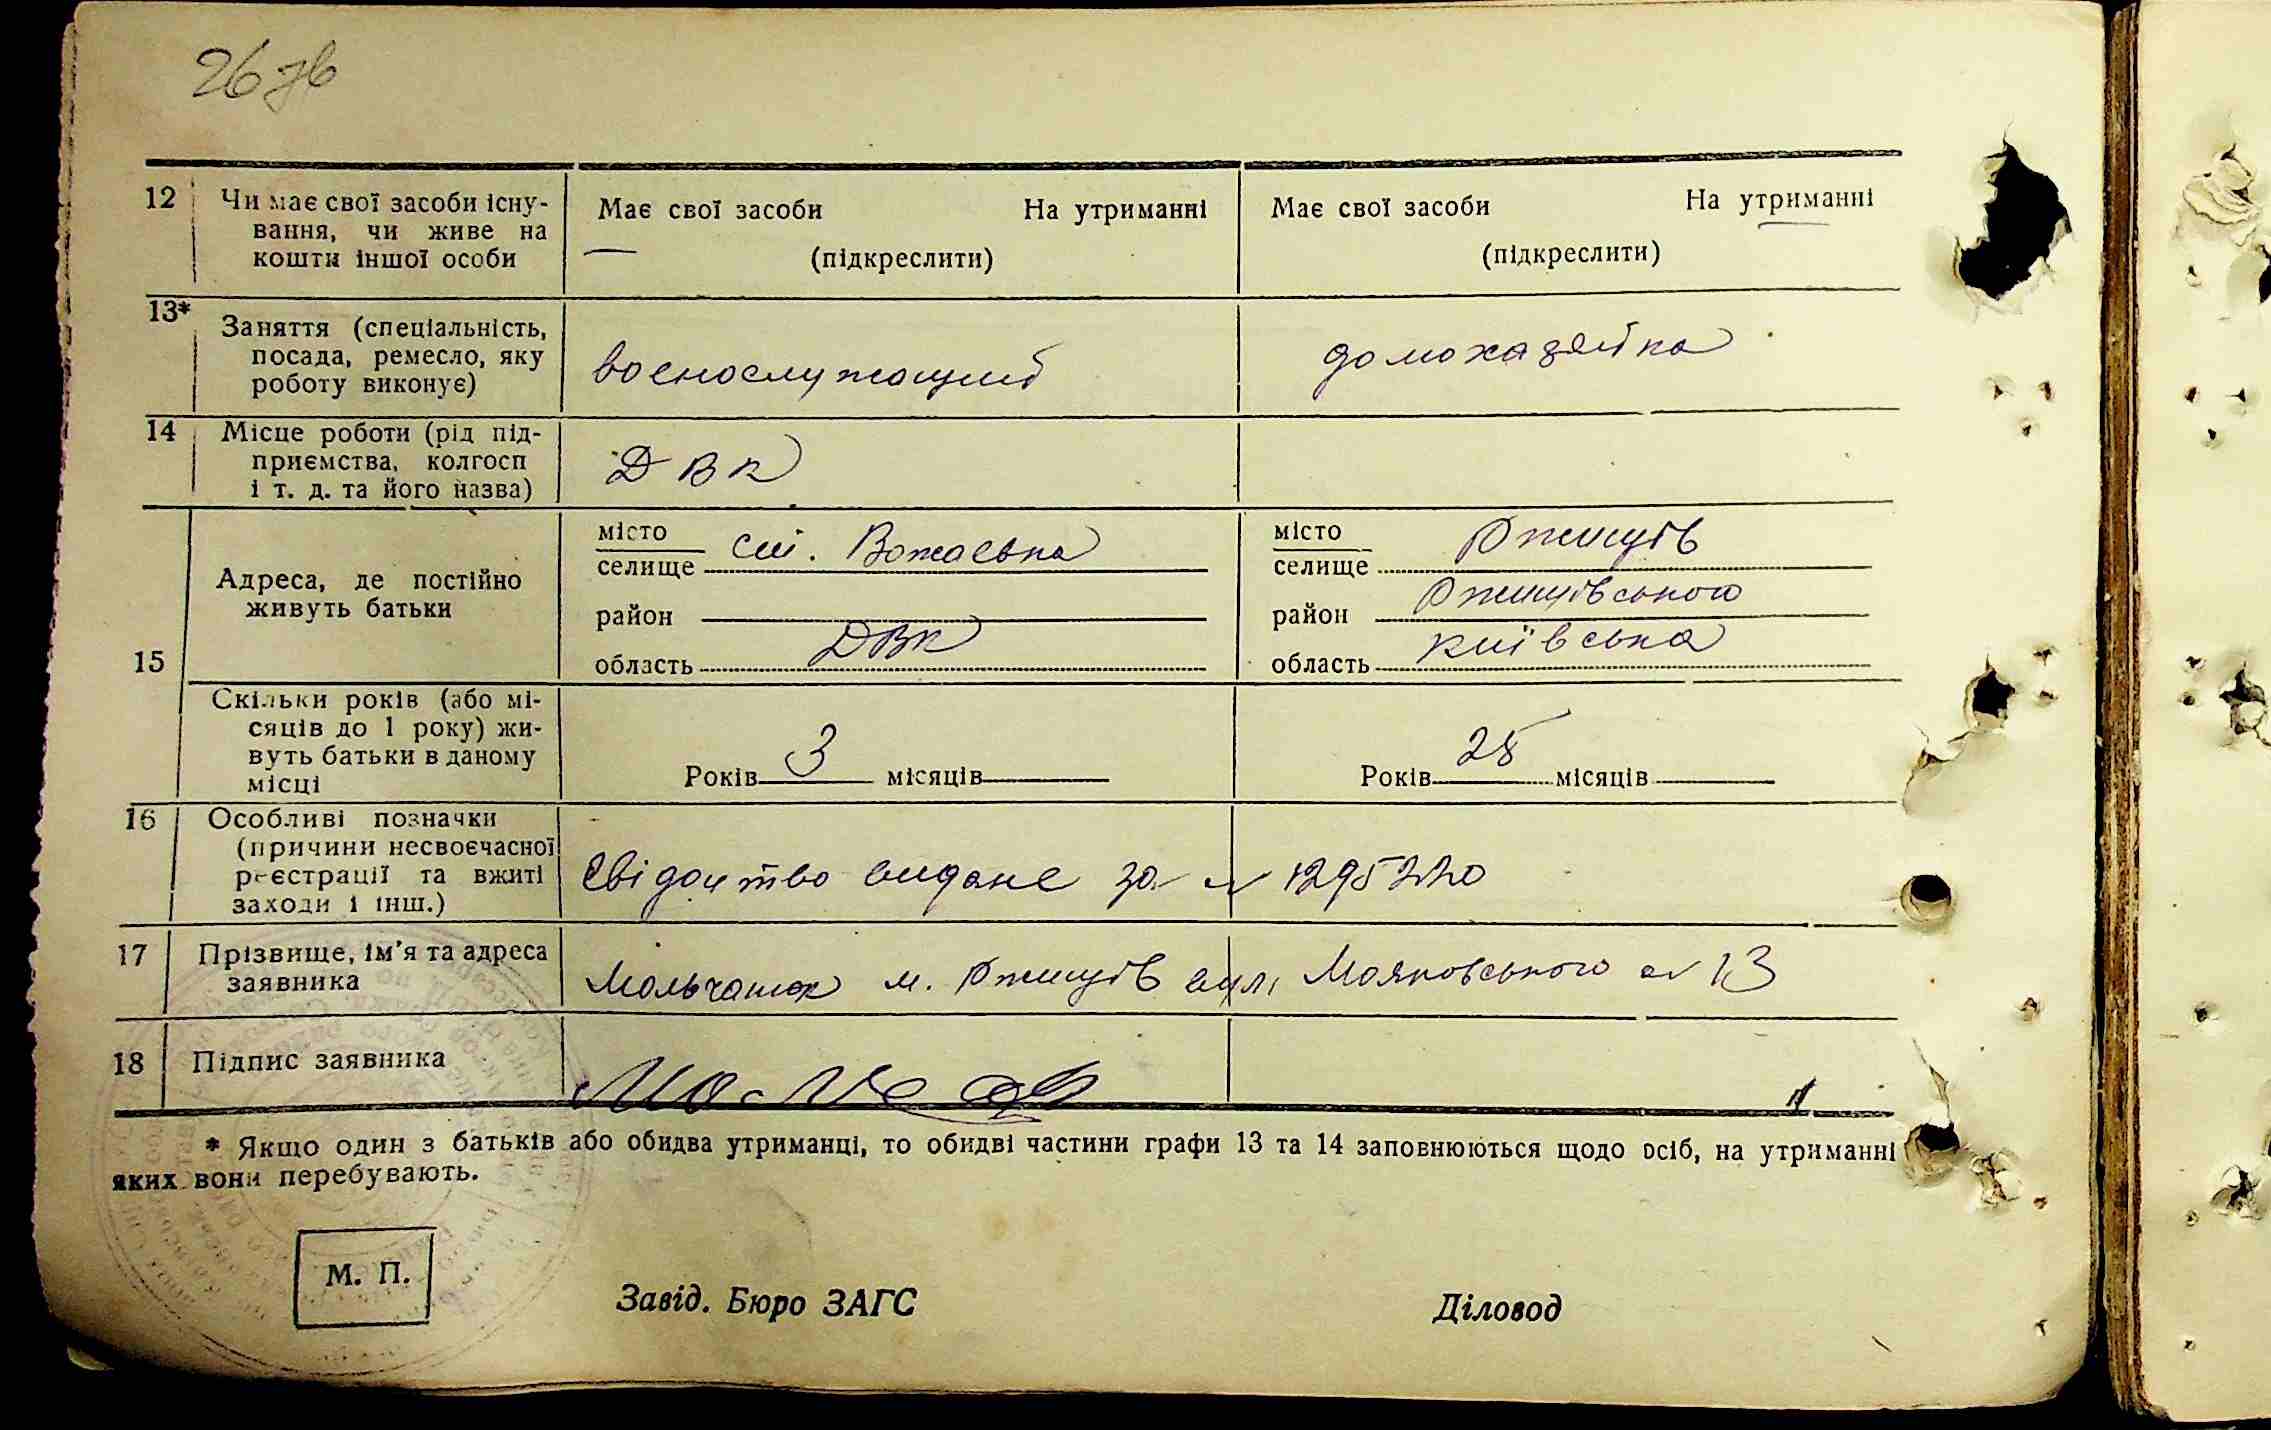 26 зв
12 Чи має свої засоби існу-
вання, чи живе на
кошти іншої особи
Має свої засоби На утриманні
(підкреслити)
Має свої засоби На утриманні
(підкреслити)
13* Заняття (спеціальність,
посада, ремесло, яку
роботу виконує)
воєнослужащий
домохазяйка
14 Місце роботи (рід під-
приємства, колгосп
і т. д. та його назва)
ДВК
15 Адреса, де постійно
живуть батьки
місто
селище ст. Вожаевка
район
область ДВК
місто
селище Ржищів
район Ржищівського
область Київська
Скільки років (або мі-
сяців до 1 року) жи-
вуть батьки в даному
місці
Років 3 місяців
Років 25 місяців
16 Особливі позначки
(причини несвоєчасної
реєстрації та вжиті
заходи і інш.)
Свідоцтво видане за №
17 Прізвище, ім'я та адреса
заявника
м. Ржищів вул. Маяковського № 13
18 Підпис заявника
* Якщо один з батьків або обидва утриманці, то обидві частини графи 13 та 14 заповнюються щодо осіб, на утриманні
яких вони перебувають.
М. П.
Завід. Бюро ЗАГС
Діловод